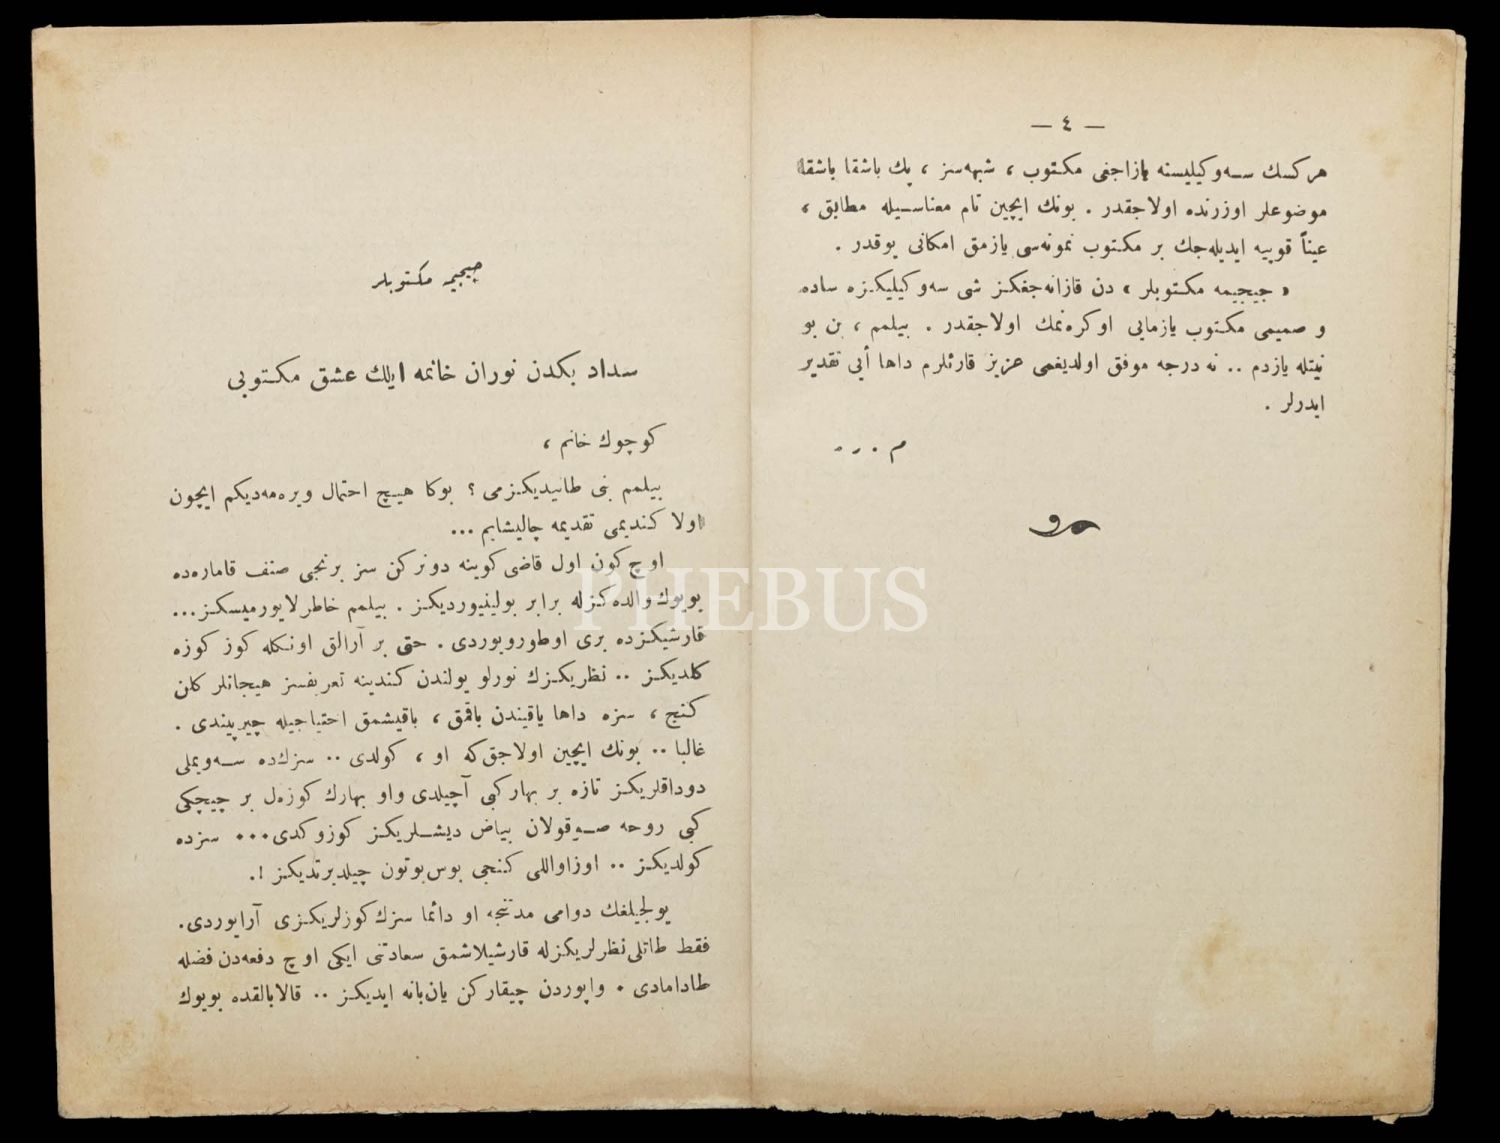 — ٤ —
هركسك سه‌وكیلیسنه یازاجغی مكتوب ، شبهه‌سز ، پك باشقا باشقا
موضوعلر اوزرنده اولاجقدر . بونك ایچین تام معناسیله مطابق ،
عیناً قوپیه ایدیله‌جك بر مكتوب نمونه‌سی یازمق امكانی یوقدر .
« جیجیمه مكتوبلر » دن قازانه‌جغكز شی سه‌وكیلیكزه ساده
و صمیمی مكتوب یازمایی اوكره‌نمك اولاجقدر . بیلمم ، بن بو
نیتله یازدم .. نه درجه موفق اولدیغمی عزیز قارئلرم داها أیی تقدیر
ایدرلر .
م . ر . ه
جیجیمه مكتوبلر
سداد بكدن نوران خانمه ایلك عشق مكتوبی
كوچوك خانم ،
بیلمم بنی طانیدیكزمی ؟ بوكا هیچ احتمال ویره‌مه‌دیكم ایچون
اولا كندیمی تقدیمه چالیشایم ...
اوچ كون اول قاضی كوینه دونركن سز برنجی صنف قاماره‌ده
بویوك والده‌كزله برابر بولینیوردیكز . بیلمم خاطرلایورمیسكز ...
قارشیكزده بری اوطورویوردی . حتی بر آرالق اونكله كوز كوزه
كلدیكز .. نظریكزك نورلو یولندن كندینه تعریفسز هیجانلر كلن
كنج ، سزه داها یاقیندن باقمق ، باقیشمق احتیاجیله چیرپیندی .
غالبا .. بونك ایچین اولاجق كه او ، كولدی .. سزك‌ده سه‌ویملی
دوداقلریكز تازه بر بهار كبی آچیلدی واو بهارك كوزه‌ل بر چیچكی
كبی روحه صوقولان بیاض دیشلریكز كوزوكدی ... سزده
كولدیكز .. اوزاواللی كنجی بوس‌بوتون چیلدیرتدیكز !.
یولجیلغك دوامی مدتنجه او دائما سزك كوزلریكزی آرایوردی .
فقط طاتلی نظرلریكزله قارشیلاشمق سعادتنی ایكی اوچ دفعه‌دن فضله
طادامادی . واپوردن چیقاركن یان‌یانه ایدیكز .. قالابالقده بویوك
PHEBUS